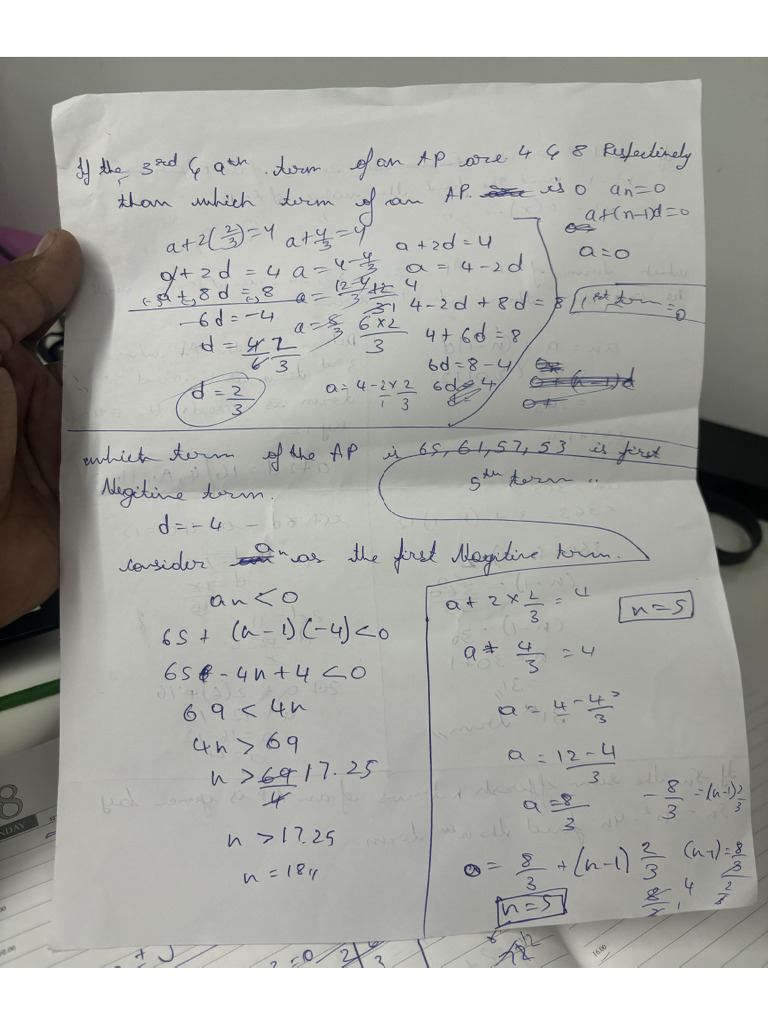 If the 3rd & 9th term of an AP are 4 & 8 Respectinely
than which term of an AP. is 0 an=0
a+(n-1)d=0
a=0
1st term=0
a+2(2/3)=4 a+4/3=4
a+2d=4
a+2d=4 a=4-4/3
a=4-2d
a+8d=8 a=12-4/3
4-2d+8d=8
-6d=-4 a=8/3 6×2/3
4+6d=8
d=4/6 2/3
6d=8-4
d=2/3
a=4-2/1×2/3 6d=4
which term of the AP is 65,61,57,53 is first
Negitine term.
5th term ..
d=-4
consider an as the first Negitine term.
an<0
65+(n-1)(-4)<0
65-4n+4<0
69<4n
4n>69
n>69/4 17.25
n>17.25
n=18,,
a+2×2/3=4
n=5
a+4/3=4
a=4/1-4/3
a=12-4/3
a=8/3
-8/3=(n-1)2/3
0=8/3+(n-1)2/3
(n-1)=8/3
2/3
n=5
16.00